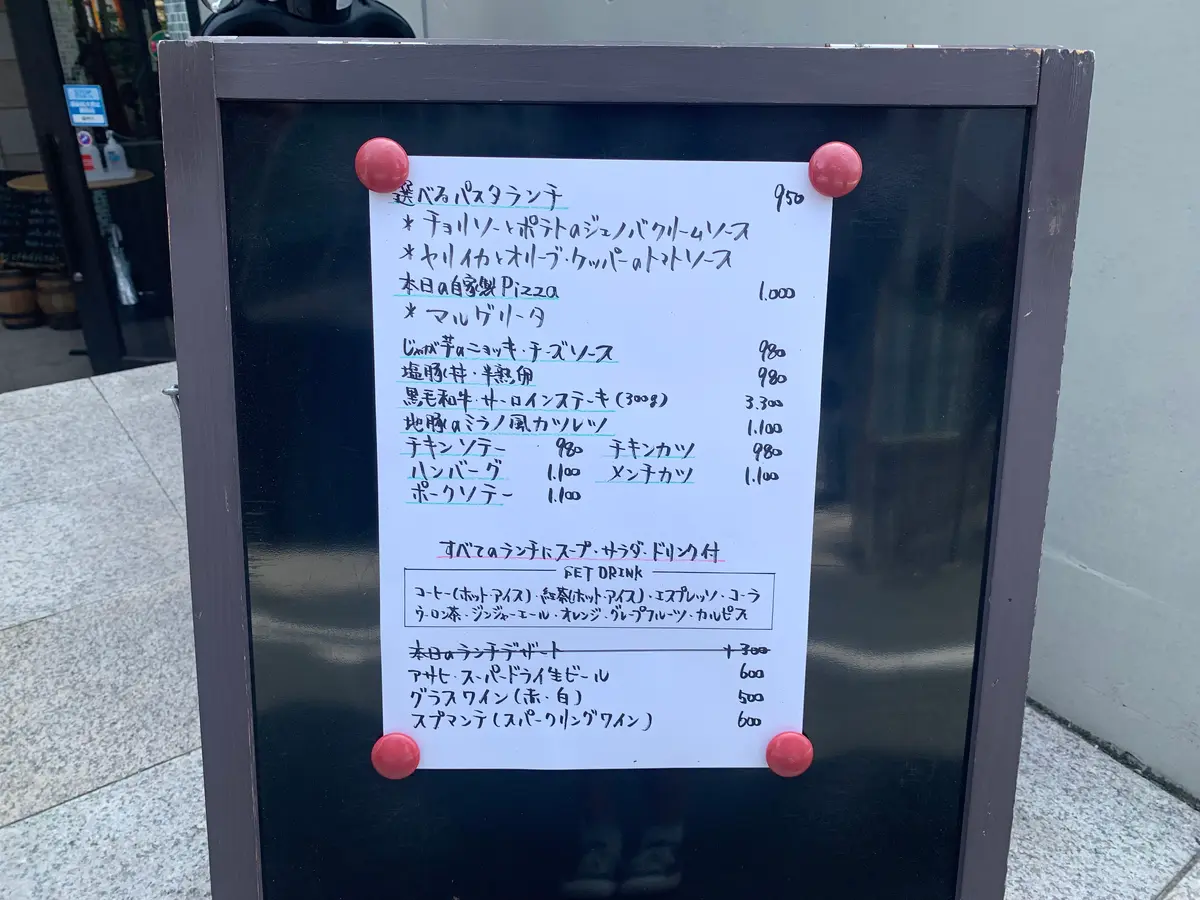 選べるパスタランチ 950
*チョリソーとポテトのジェノバクリームソース
*ヤリイカとオリーブ・ケッパーのトマトソース
本日の自家製Pizza 1.000
*マルゲリータ
じゃが芋のニョッキ・チーズソース 980
塩豚丼・半熟卵 980
黒毛和牛・サーロインステーキ(300g) 3.300
地豚のミラノ風カツレツ 1.100
チキンソテー 980 チキンカツ 980
ハンバーグ 1.100 メンチカツ 1.100
ポークソテー 1.100
すべてのランチにスープ・サラダ・ドリンク付
SET DRINK
コーヒー(ホット・アイス)・紅茶(ホット・アイス)・エスプレッソ・コーラ
ウーロン茶・ジンジャーエール・オレンジ・グレープフルーツ・カルピス
本日のランチデザート +300
アサヒ・スーパードライ生ビール 600
グラスワイン(赤・白) 500
スプマンテ(スパークリングワイン) 600